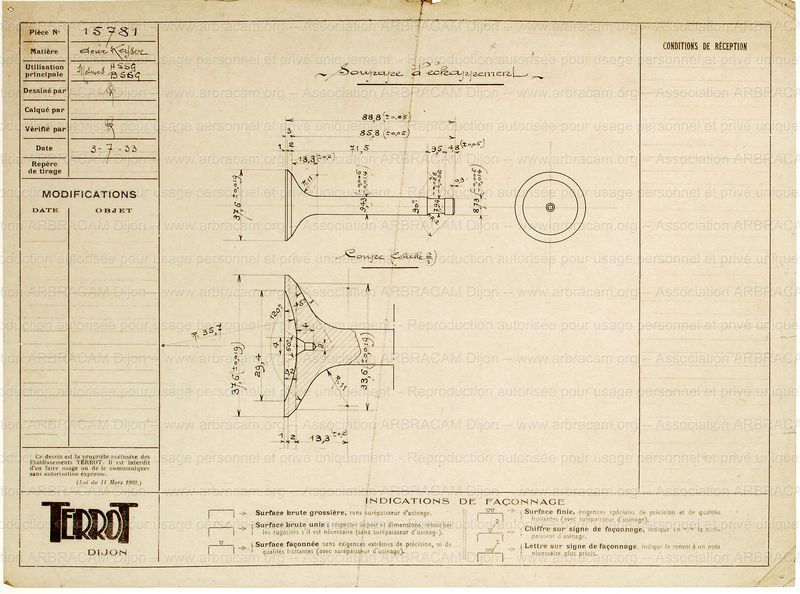 Pièce N° 15781
Matière acier Kayser
Utilisation principale Moteurs HSSG
Dessiné par
Calqué par
Vérifié par
Date 3-7-33
Repère de tirage
MODIFICATIONS
DATE OBJET
Ce dessin est la propriété exclusive des
Etablissements TERROT. Il est interdit
d'en faire usage ou de le communiquer
sans autorisation expresse.
(Loi du 11 Mars 1902.)
TERROT
DIJON
CONDITIONS DE RÉCEPTION
Soupape d'échappement
88,8 (±0,05)
85,8 (±0,05)
1 2 71,5 9,5 4,8 (±0,05)
13,3
R.11
37,6 ±0,019
90°
Coupe (échelle 2)
R.35
120°
45°
4
60°
37,6 (±0,019)
29,4
33,6 (±0,019)
R.11
1 2 13,3
INDICATIONS DE FAÇONNAGE
Surface brute grossière, sans surépaisseur d'usinage.
Surface brute unie; respecter aspect et dimensions, retoucher
les rugosités s'il est nécessaire (sans surépaisseur d'usinage).
Surface façonnée sans exigences extrêmes de précision, ni de
qualités frottantes (avec surépaisseur d'usinage).
Surface finie, exigences spéciales de précision et de qualités
frottantes (avec surépaisseur d'usinage).
Chiffre sur signe de façonnage, indique en m/m la
paisseur d'usinage.
Lettre sur signe de façonnage, indique le renvoi à un nota
nécessaire plus précis.
Association ARBRACAM Dijon -- www.arbracam.org
Reproduction autorisée pour usage personnel et privé uniquement.